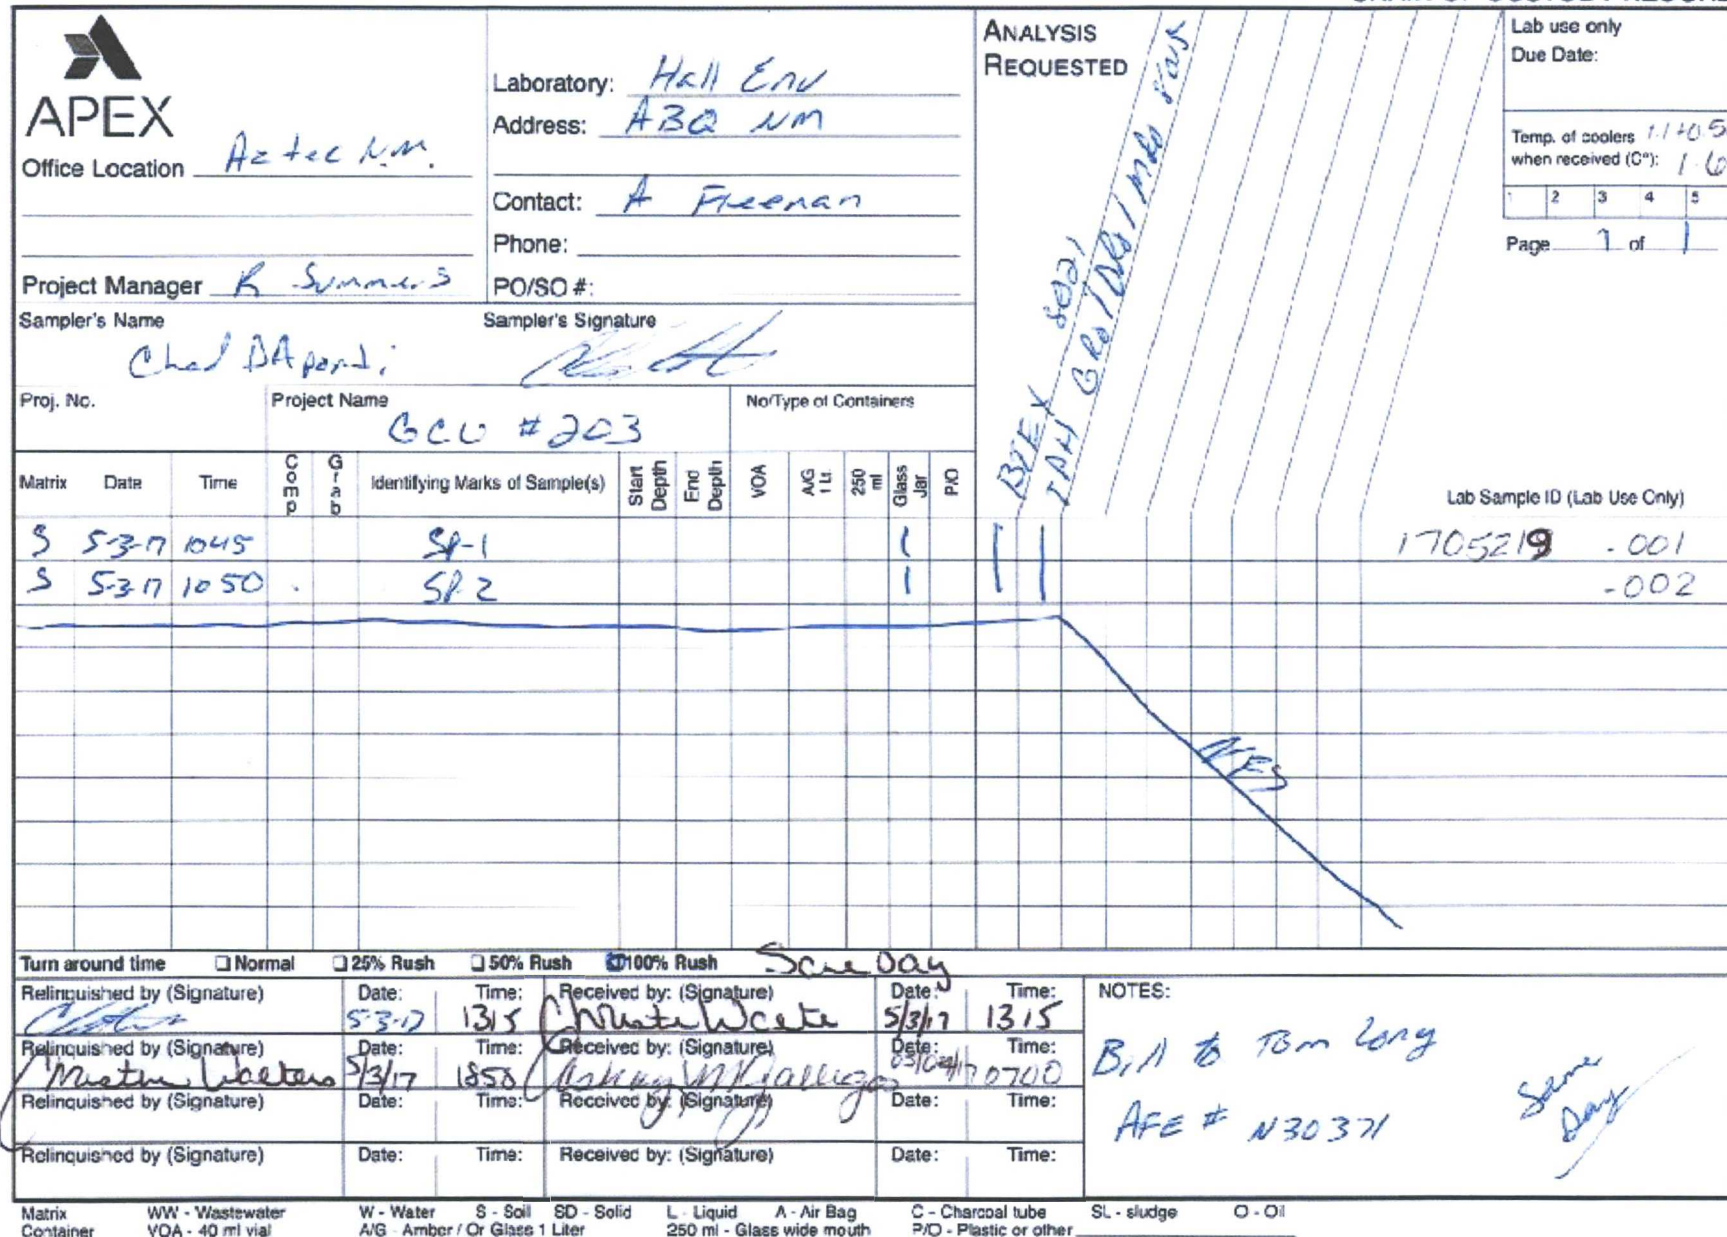 APEX
Office Location Aztec N.M.
Project Manager R Summers
Laboratory: Hall Env
Address: ABQ NM
Contact: A Freeman
Phone:
PO/SO #:
ANALYSIS
REQUESTED
BTEX 8021
TPH GRO/DRO/MRO 8015
Lab use only
Due Date:
Temp. of coolers 1.1+0.5
when received (C°): 1.6
1 2 3 4 5
Page 1 of 1
Sampler's Name
Chad
Sampler's Signature
Proj. No.
Project Name
GCU #203
No/Type of Containers
Matrix Date Time Comp Grab Identifying Marks of Sample(s) Start Depth End Depth VOA A/G 1 Lt. 250 ml Glass Jar P/O
Lab Sample ID (Lab Use Only)
S 5-3-17 1045 SP-1 1 1 1 1705219 -001
S 5-3-17 1050 SP-2 1 1 1 -002
Turn around time Normal 25% Rush 50% Rush 100% Rush Same Day
Relinquished by (Signature) Date: Time: Received by: (Signature) Date: Time:
5-3-17 1315 5/3/17 1315
Relinquished by (Signature) Date: Time: Received by: (Signature) Date: Time:
5/3/17 1858 05/04/17 0700
Relinquished by (Signature) Date: Time: Received by: (Signature) Date: Time:
Relinquished by (Signature) Date: Time: Received by: (Signature) Date: Time:
NOTES:
Bill to Tom Long
AFE # N30371
Same
Day
Matrix WW - Wastewater W - Water S - Soil SD - Solid L - Liquid A - Air Bag C - Charcoal tube SL - sludge O - Oil
Container VOA - 40 ml vial A/G - Amber / Or Glass 1 Liter 250 ml - Glass wide mouth P/O - Plastic or other